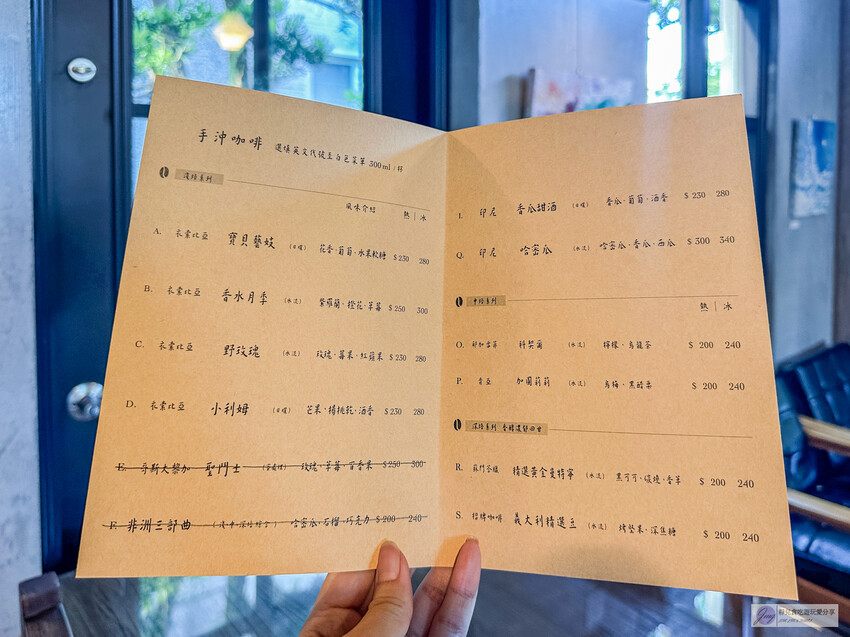 手沖咖啡 選填英文代號至白色菜單 300ml / 杯
淺焙系列
風味介紹 熱 | 冰
A. 衣索比亞 寶貝藝妓 (日曬) 花香·葡萄·水果軟糖 $230 280
B. 衣索比亞 香水月季 (水洗) 紫羅蘭·橙花·草莓 $250 300
C. 衣索比亞 野玫瑰 (水洗) 玫瑰·莓果·紅蘋果 $230 280
D. 衣索比亞 小利姆 (日曬) 芒果·楊桃乾·酒香 $230 280
E. 哥斯大黎加 聖鬥士 玫瑰·草莓·百香果 $250 300
F. 非洲三部曲 (淺·中·深焙綜合) 哈密瓜·石榴·巧克力 $200 240
I. 印尼 香瓜甜酒 (日曬) 香瓜·葡萄·酒香 $230 280
Q. 印尼 哈密瓜 (水洗) 哈密瓜·香瓜·西瓜 $300 340
中焙系列
熱 | 冰
O. 耶加雪菲 科契爾 (水洗) 檸檬·烏龍茶 $200 240
P. 肯亞 加蘭莉莉 (水洗) 烏梅·黑醋栗 $200 240
深焙系列 香醇濃郁回甘
R. 蘇門答臘 精選黃金曼特寧 (水洗) 黑可可·碳燒·香草 $200 240
S. 招牌咖啡 義大利精選豆 (水洗) 烤堅果·深焦糖 $200 240